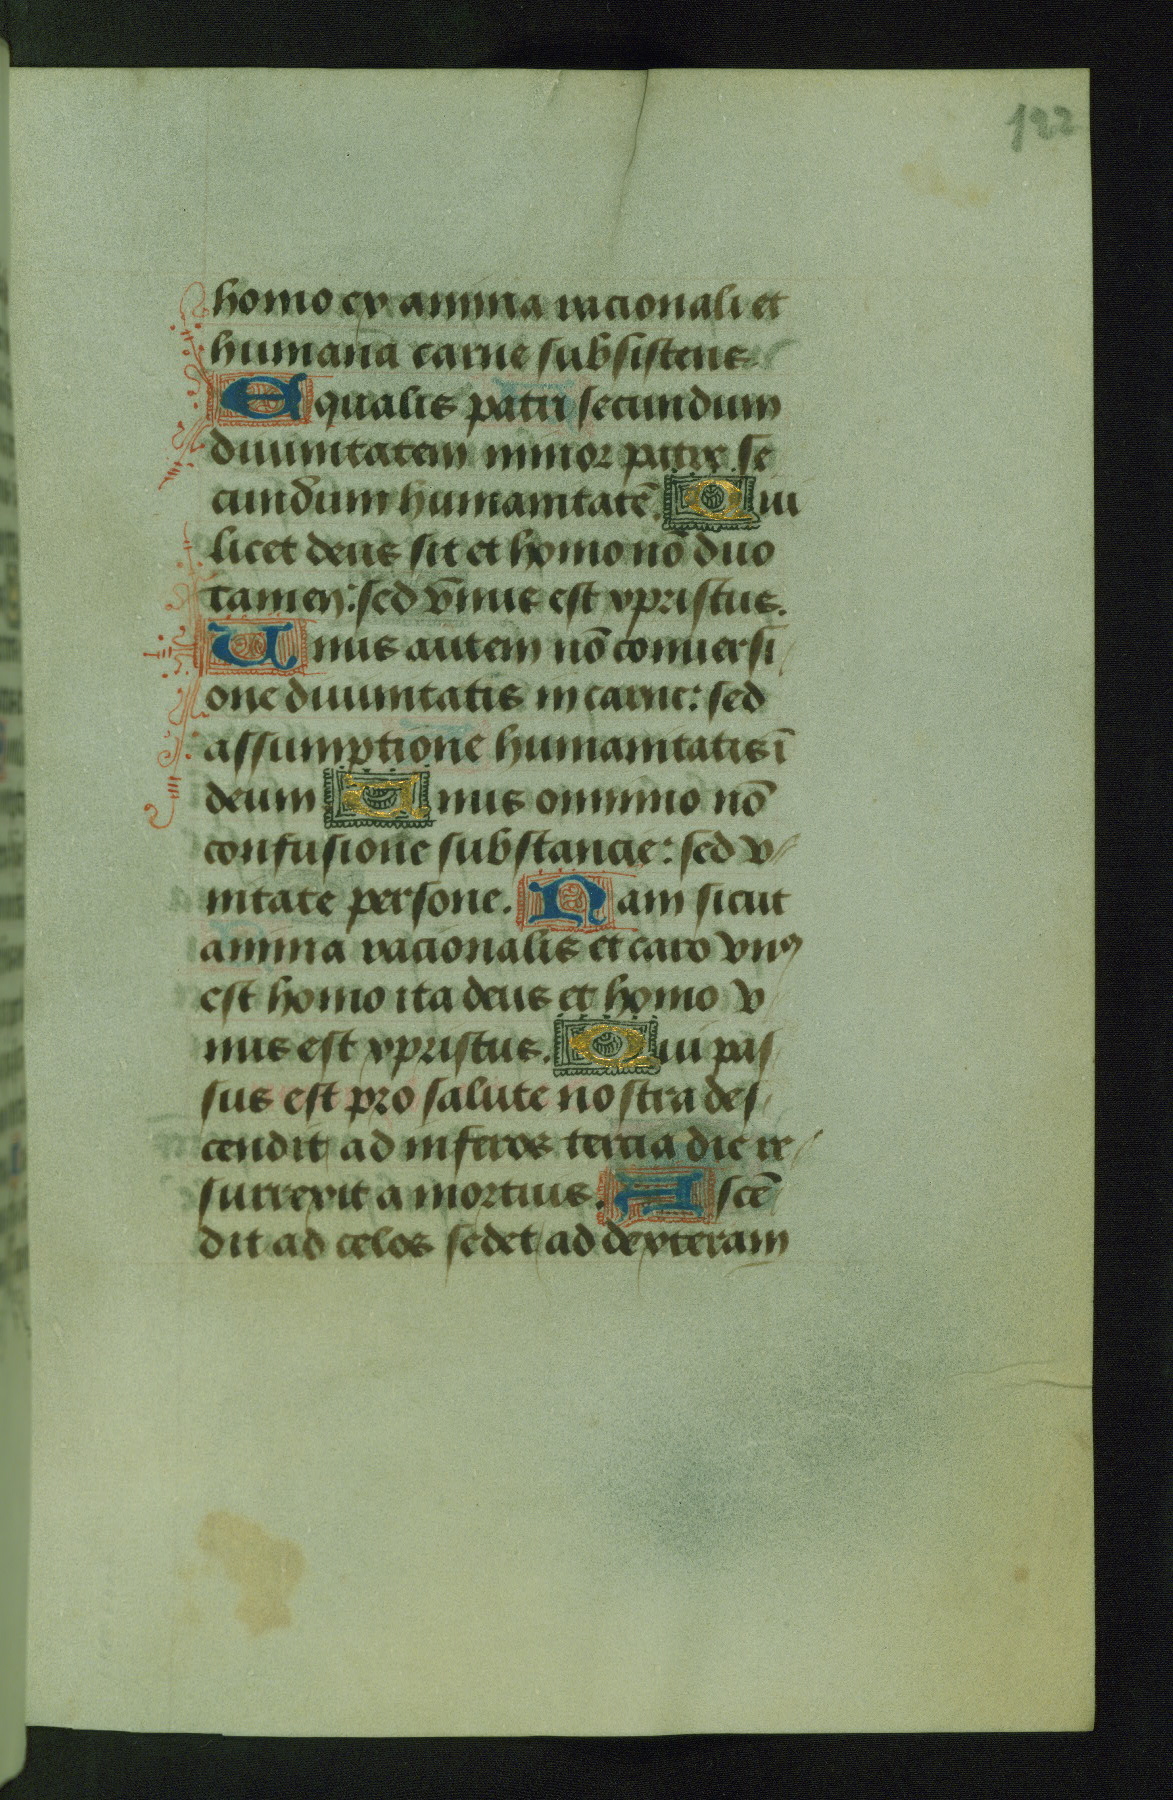 122
homo ex anima racionali et
humana carne subsistens
Equalis patri secundum
diuinitatem minor patre se
cundum humanitatē. Qui
licet deus sit et homo nō duo
tamen: sed vnus est xpristus.
Unus autem nō conuersi
one diuinitatis in carne: sed
assumptione humanitatis ī
deum Unus omnino nō
confusione substancie: sed v
nitate persone. Nam sicut
anima racionalis et caro vnꝰ
est homo ita deus et homo v
nus est xpristus. Qui pas
sus est pro salute nostra des
cendit ad inferos tercia die re
surrexit a mortuis. Ascē
dit ad celos sedet ad dexteram